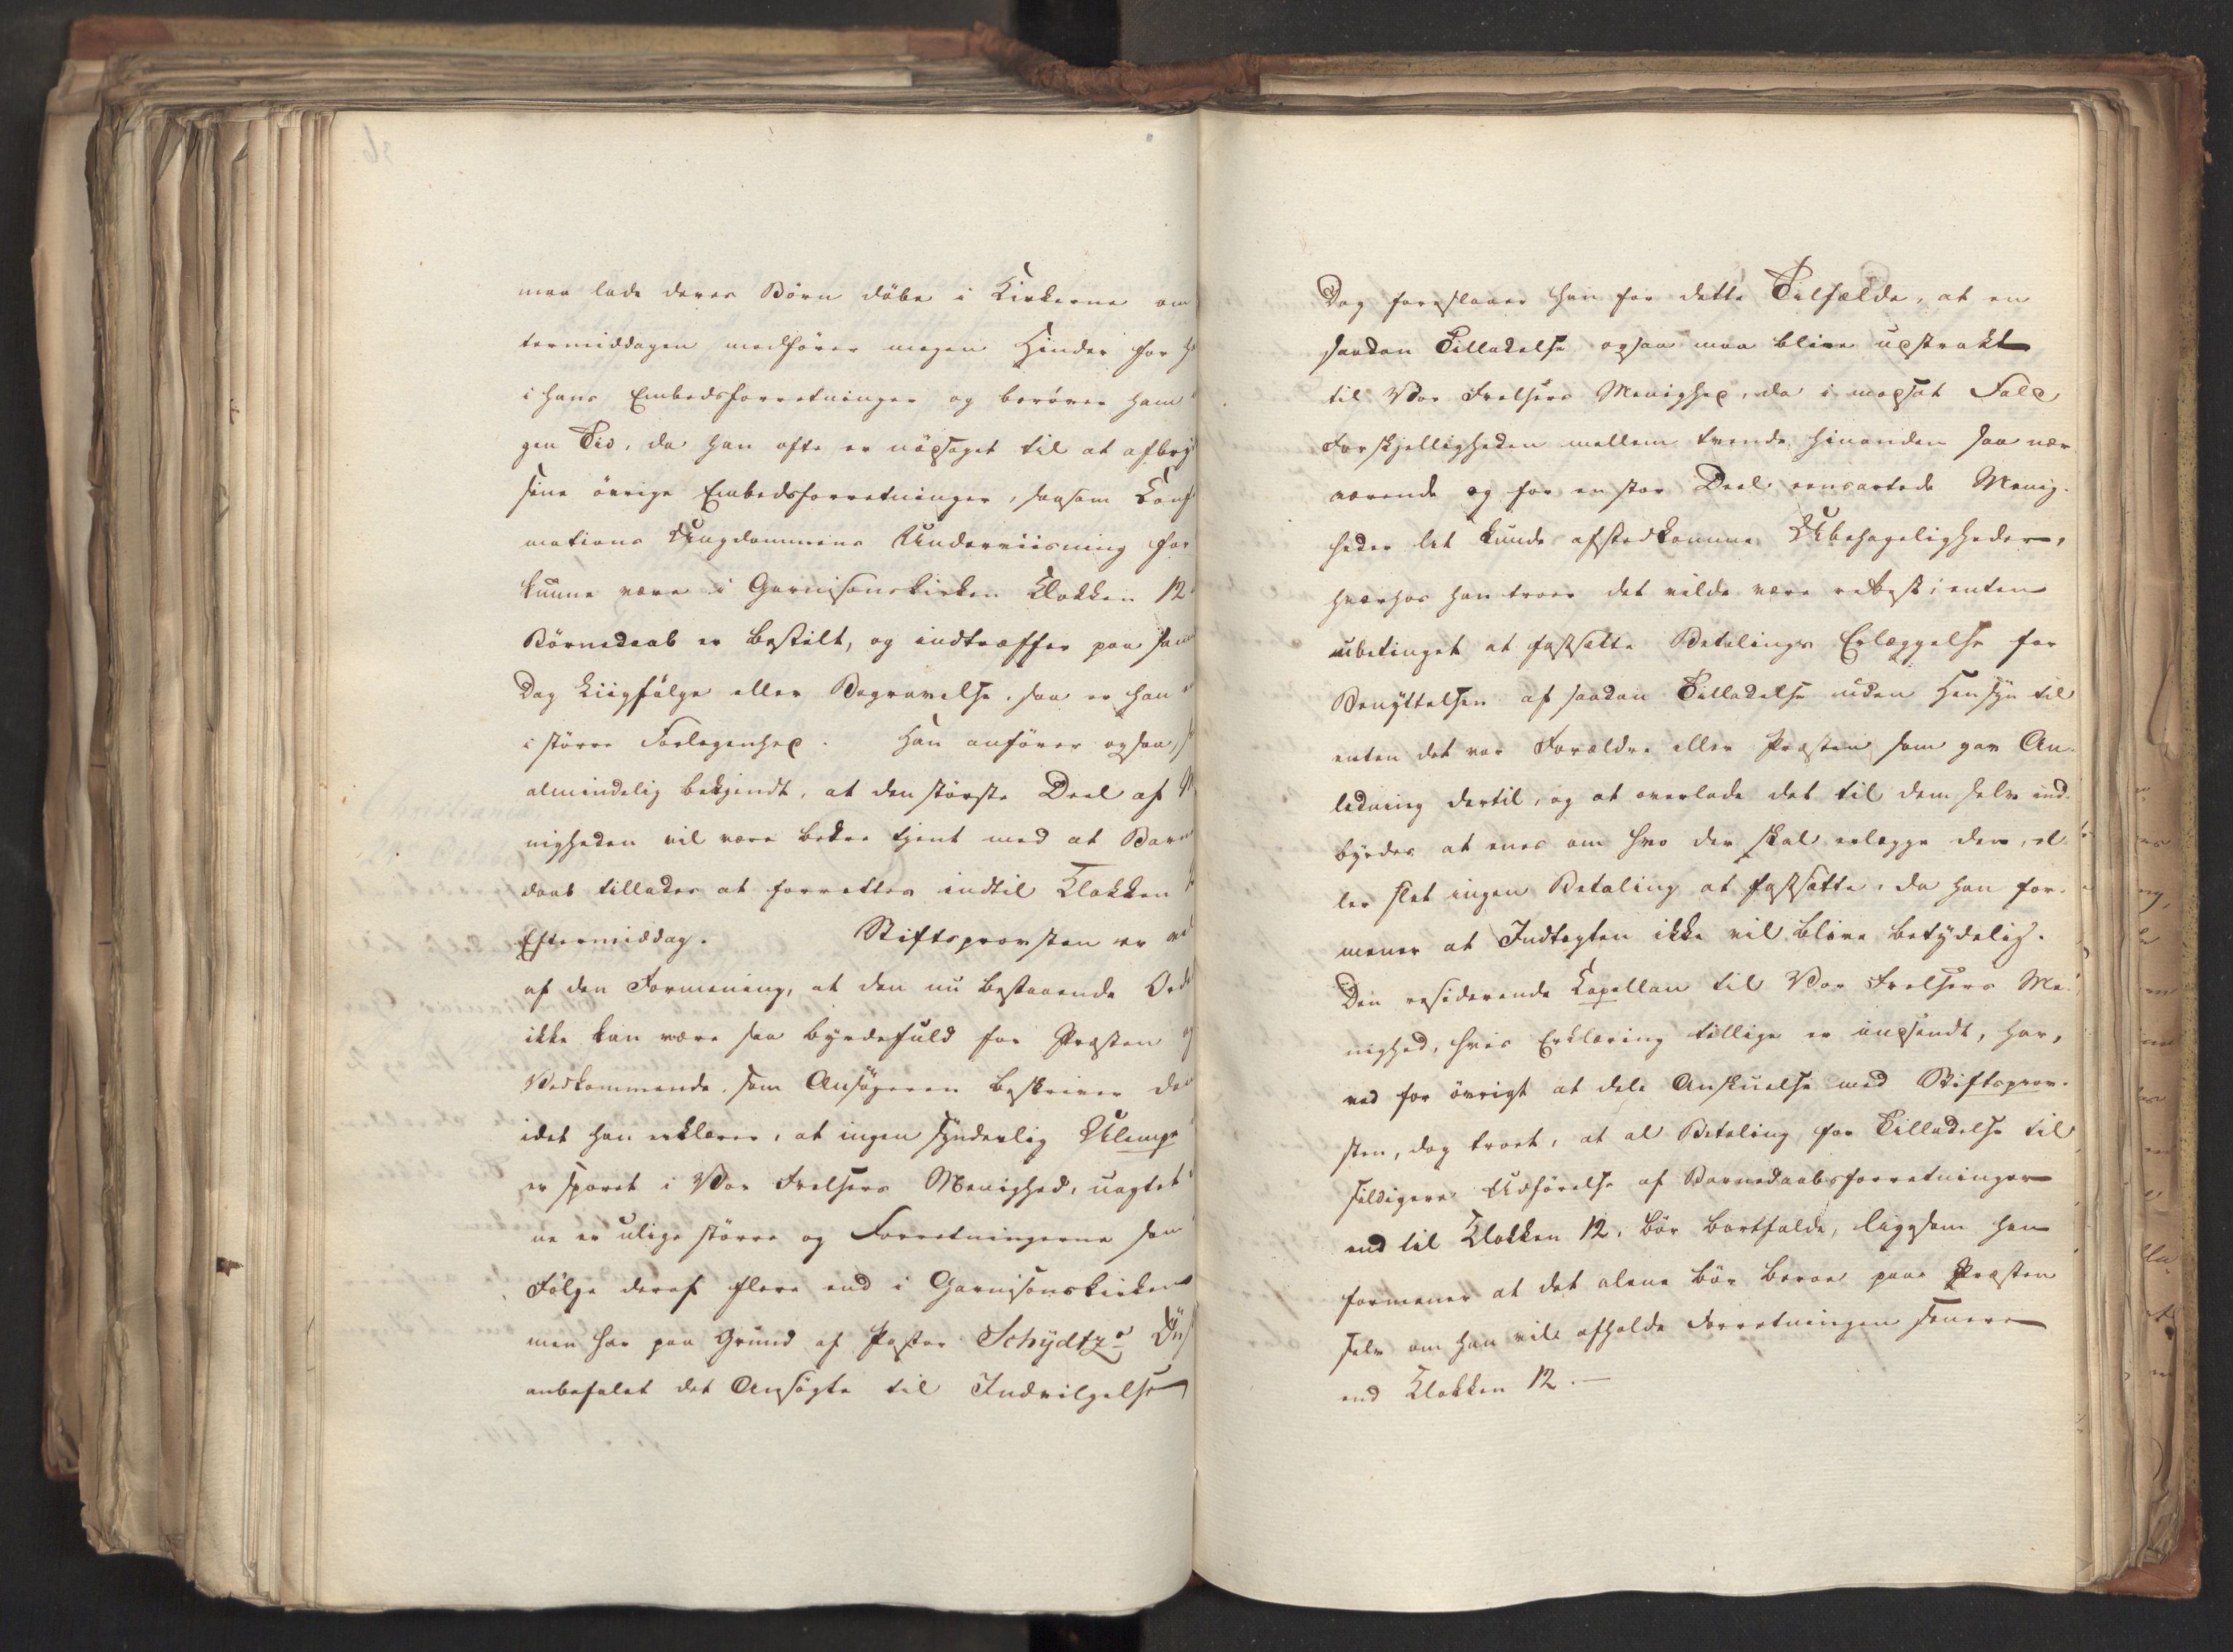 maa lade deres Børn døbe i Kirkerne om
termiddagen medfører megen Hinder for
i hans Embedsforretninger og berøver ham
gen Tid, da han ofte er nødsaget til at afbry
sine øvrige Embedsforretninger, saasom Conf
mations Ungdommens Underviisning for
kunne være i Garnisonskirken Klokken 12
Børnedaab er bestilt, og indtræffer paa sam
Dag Liigfølge eller Begravelse, saa er han
i større Forlegenhed. Han anfører ogsaa,
almindelig bekjendt, at den største Deel af M
nigheden vil være bedre tjent med at Barne
daab tillades at forrettes indtil Klokken
Eftermiddag. Stiftsprovsten er vel
af den Formening, at den nu bestaaende Orde
ikke kan være saa byrdefuld for Præsten og
Vedkommende, som Ansøgeren beskriver den
idet han erklærer, at ingen synderlig Ulempe
er sporet i Vor Frelsers Menighed, uagtet
ne er ulige større og Forretningerne som
Følge deraf flere end i Garnisonskirken
men har paa Grund af Pastor Schydtz's Øns
anbefalet det Ansøgte til Indvilgelse
Dog foreslaaer han for dette Tilfælde, at en
saadan Tilladelse ogsaa maa blive udstrakt
til Vor Frelsers Menighed, da i modsat Fald
Forskjelligheden mellem tvende hinanden saa nær
værende og for en stor Deel eensartede Menig-
heder let kunde afstedkomme Ubehageligheder,
hvorhos han troer det vilde være rettest, enten
ubetinget at fastsætte Betalings Erlæggelse for
Benyttelsen af saadan Tilladelse uden Hensyn til
enten det var Forældre eller Præsten som gav An-
ledning dertil, og at overlade det til dem selv ind-
byrdes at enes om hvo der skal erlægge den, el-
ler slet ingen Betaling at fastsætte, da han for-
mener at Indtægten ikke vil blive betydelig.
Den residerende Capellan til Vor Frelsers Me-
nighed, hvis Erklæring tillige er indsendt, har,
ved for øvrigt at dele Anskuelse med Stiftsprov-
sten, dog troet, at al Betaling for Tilladelse til
sildigere Udførelse af Barnedaabsforretninger
end til Klokken 12, bør bortfalde, ligesom han
formener at det alene bør beroe paa Præsten
selv om han vil afholde Forretningen senere
end Klokken 12.—